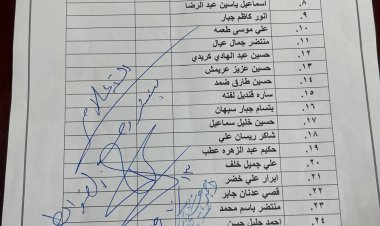 ٨. اسماعيل ياسين عبد الرضا
٩. انور كاظم جبار
١٠. علي موسى طعمه
١١. منتضر جمال عيال
١٢. حسين عبد الهادي كريدي
١٣. حسين عزيز عريمش
١٤. حسين طارق ضمد
١٥. ساره قنديل لفته
١٦. بتسام جبار سبهان
١٧. حسين خليل سماعيل
١٨. شاكر ريسان علي
١٩. حكيم عبد الزهره عطب
٢٠. علي جميل خلف
٢١. ابرار علي خضر
٢٢. قصي عدنان جابر
٢٣. منتضر باسم محمد
٢٤. احمد جليل حسن